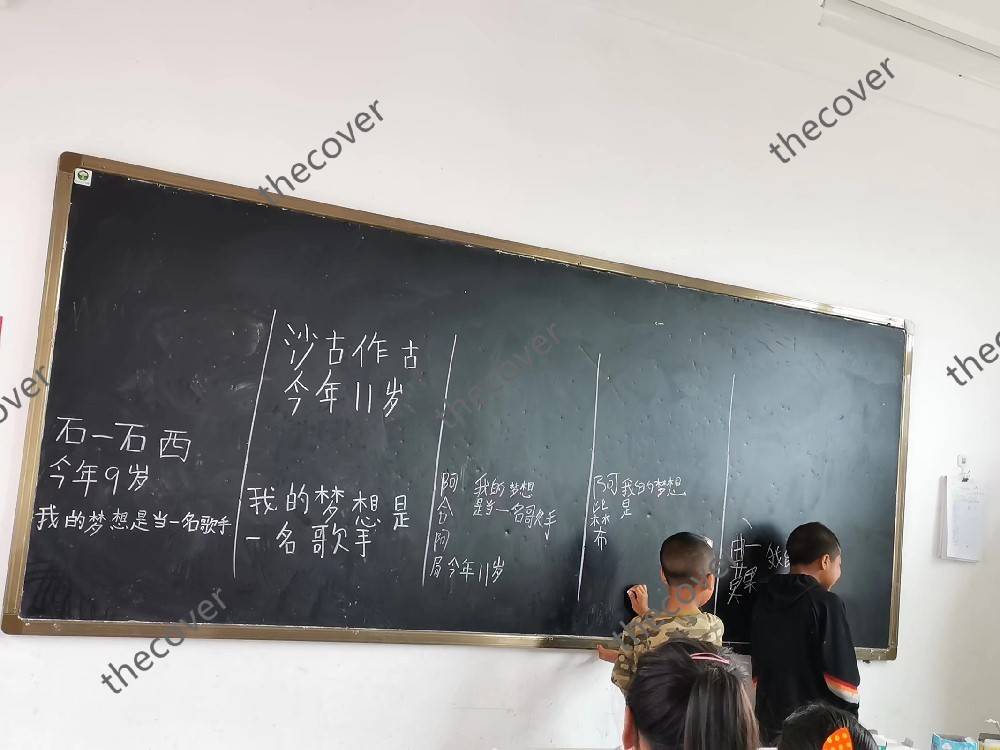 石一石西
今年9岁
我的梦想是当一名歌手
沙古作古
今年11岁
我的梦想是
一名歌手
阿
合
阿
局今年11岁
我的梦想
是当一名歌手
阿
布
我的梦想
是
曲
我的
thecover
thecover
thecover
thecover
thecover
thecover